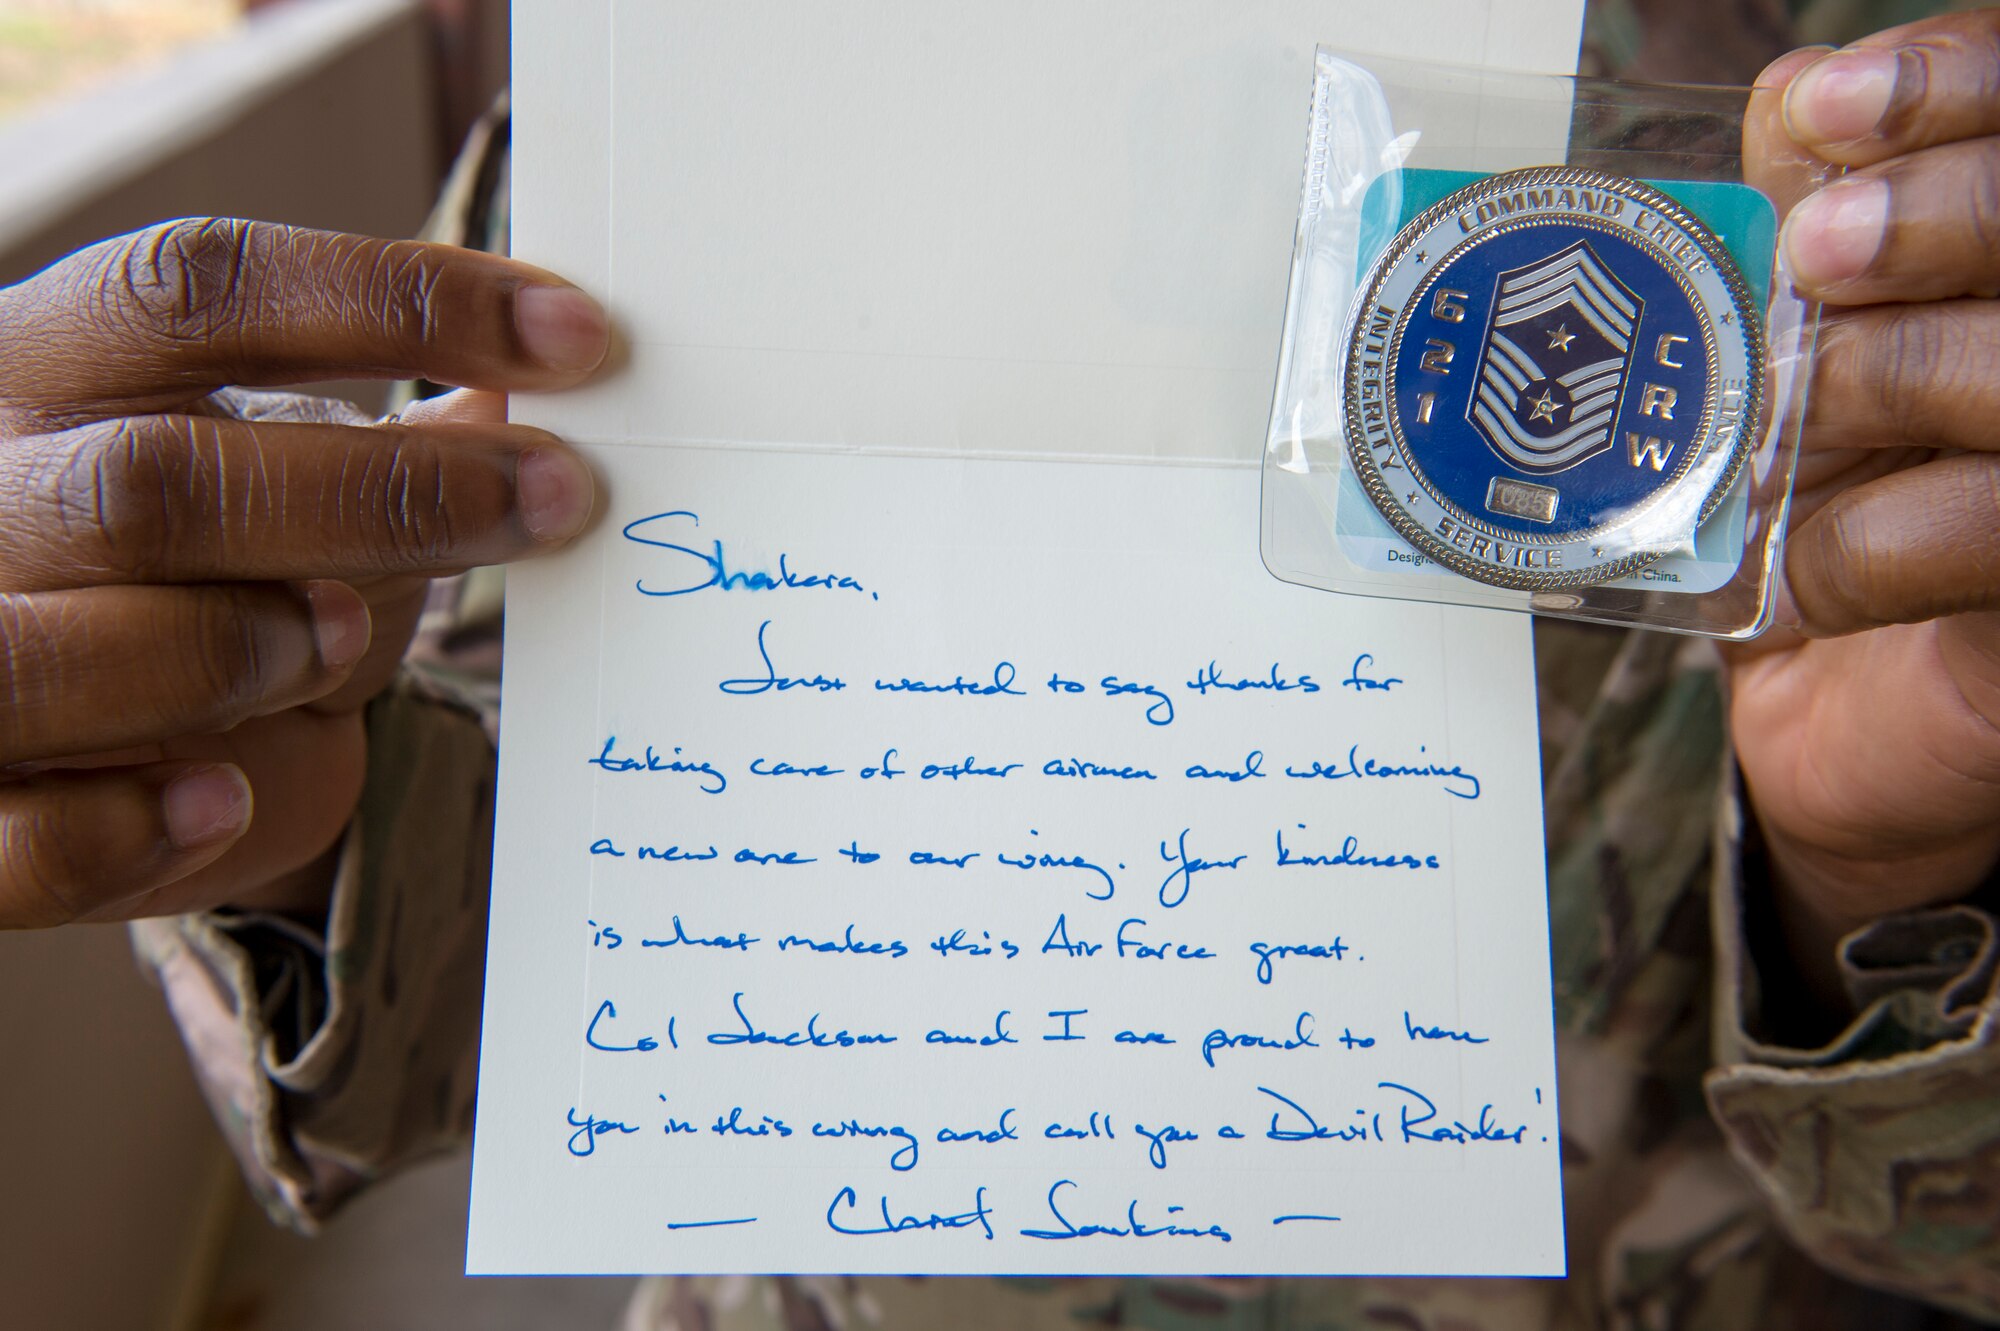 COMMAND CHIEF
6
2
1
C
R
W
INTEGRITY
ENCE
085
SERVICE
Design
in China.
Shakera,
Just wanted to say thanks for
taking care of other airmen and welcoming
a new one to our wing. Your kindness
is what makes this Air Force great.
Col Jackson and I are proud to have
you in this wing and call you a Devil Raider!
— Chief Jenkins —